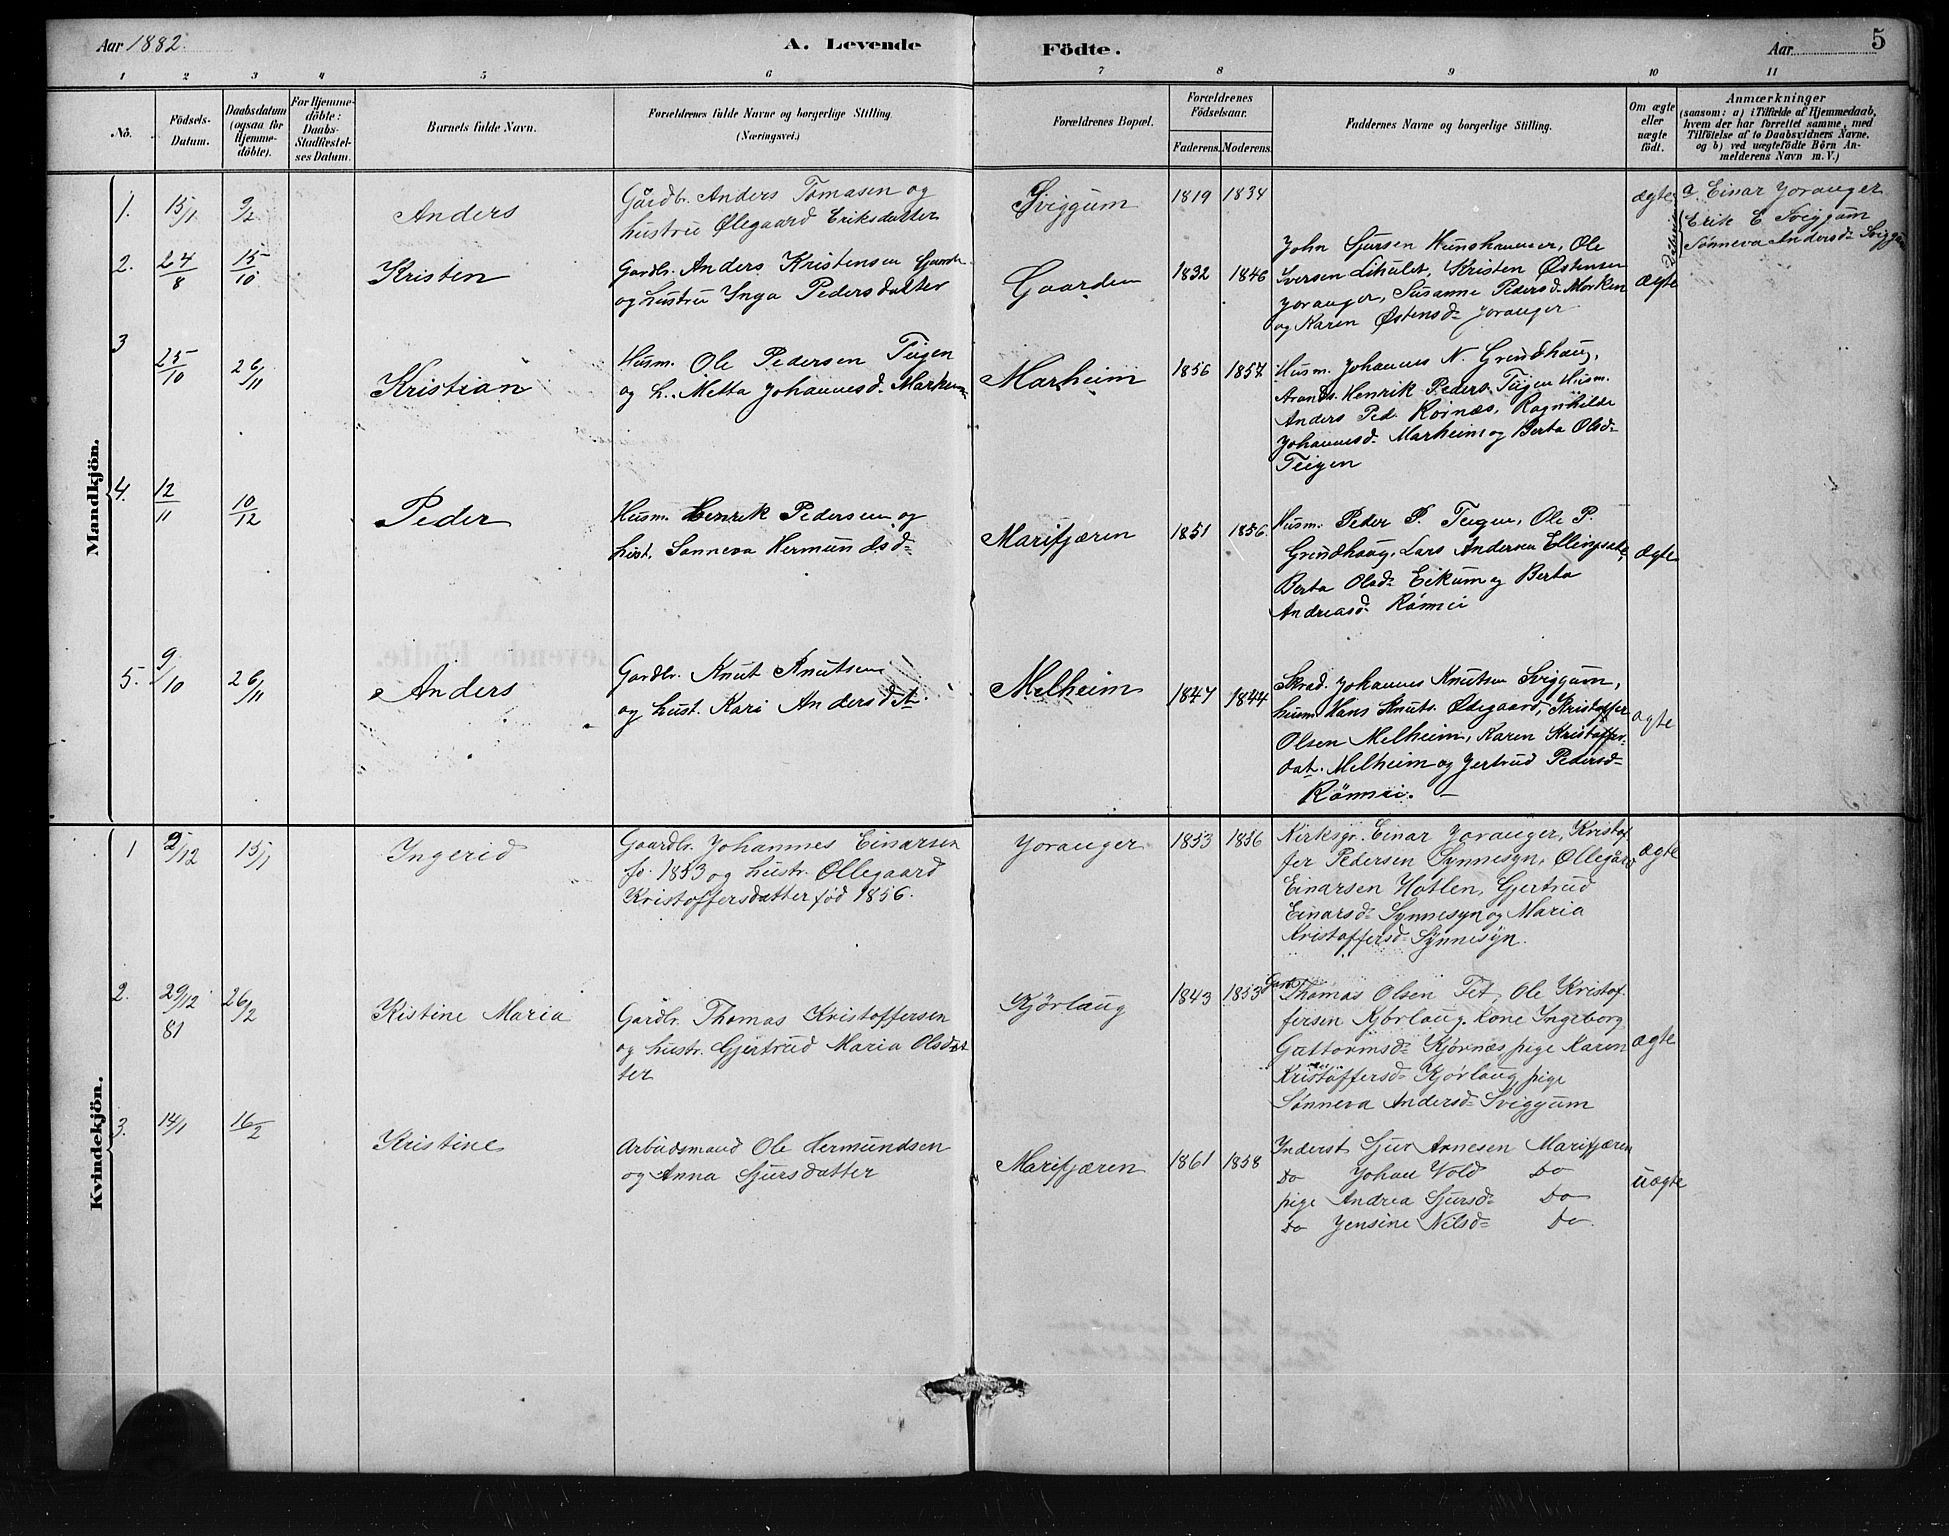 Aar 1882. A. Levende Födte. Aar 5
1 2 3 4 5 6 7 8 9 10 11
No.
Födsels-
Datum.
Daabsdatum
(ogsaa for
Hjemme-
döbte).
For Hjemme-
döbte:
Daabs-
Stadfæstel-
ses Datum.
Barnets fulde Navn.
Forældrenes fulde Navne og borgerlige Stilling.
(Næringsvei.)
Forældrenes Bopæl.
Forældrenes
Födselsaar.
Faderens. Moderens.
Faddernes Navne og borgerlige Stilling.
Om ægte
eller
uægte
födt.
Anmærkninger
(saasom: a) i Tilfælde af Hjemmedaab,
hvem der har forrettet samme, med
Tilföielse af to Daabsvidners Navne,
og b) ved uægtefödte Börn An-
melderens Navn m. V.)
Mandkjön.
1. 15/1 9/2 Anders
Gårdbr. Anders Tomasen og
hustru Ølegaard Eriksdatter
Sviggum 1819 1834 ægte
a. Einar Joranger
Erik E Sviggum
Sønneva Andersd. Sviggum
2. 24/8 15/10 Kristen
Gardbr. Anders Kristensen
og hustru Inga Pedersdatter
Gaarden 1832 1846
John Sjursen Hunshammer, Ole
Iversen Lihulet, Kristen Østensen
Joranger, Susanne Pedersd. Morken
og Karen Østensd. Joranger
ægte
3 25/10 26/11 Kristian
Husm. Ole Pedersen Teigen
og h. Metta Johannesd. Marheim
Marheim 1856 1857
Husm. Johannes N. Grindhaug,
Henrik Peders. Teigen Husm.
Anders Ped. Kørnæs, Ragnhilde
Johannesd. Marheim og Berta Olsd.
Teigen
4. 12/11 10/12 Peder
Husm. Henrik Pedersen og
hust. Sønneva Hermundsd.
Marifjæren 1851 1856.
Husm. Peder P. Teigen, Ole P.
Grindhaug, Lars Andersen
Berta Olsd. Eikum og Berta
Andreasd. Rømei
ægte
5. 9/10 26/11 Anders
Gardbr. Knut Knutsen
og hust. Kari Andersdt.
Melheim 1847 1844
Skrad. Johannes Knutsen Sviggum,
husm Hans Knuts. Ødegaard, Kristoffer
Olsen Melheim, Karen Kristoffers-
dat. Melheim og Gertrud Pedersd.
Rømei.
ægte
Kvindekjön.
1 2/12 15/1 Ingerid
Gaardbr. Johannes Einarsen
fø. 1853 og hustr. Ollegaard
Kristoffersdatter fød 1856.
Joranger 1853 1856
Kirksgr. Einar Joranger, Kristof-
fer Pedersen Synnesyn, Ollegård
Einarsen Hatlen, Gjertrud
Einarsd. Synnesyn og Maria
Kristoffersd. Synnesyn.
ægte
2. 29/12 81 26/2 Kistine Maria
Gardbr. Thomas Kristoffersen
og hustr. Gjertrud Maria Olsdat
ter
Kjørlaug 1843 1853
Gard. Thomas Olsen Fet, Ole Kristof-
fersen Kjørlaug, kone Ingeborg
Guttormsd. Kjørnæs pige Karen
Kristoffersd. Kjørlaug, pige
Sønneva Andersd. Sviggum
ægte
3. 14/1 16/2 Kristine
Arbeidsmand Ole Hermundsen
og Anna Sjursdatter
Marifjæren 1861 1858
Inderst Sjur Arnesen Marifjæren
Do Johan Vold Do
pige Andrea Sjursd. Do
Do Jensine Nilsd. Do.
uægte